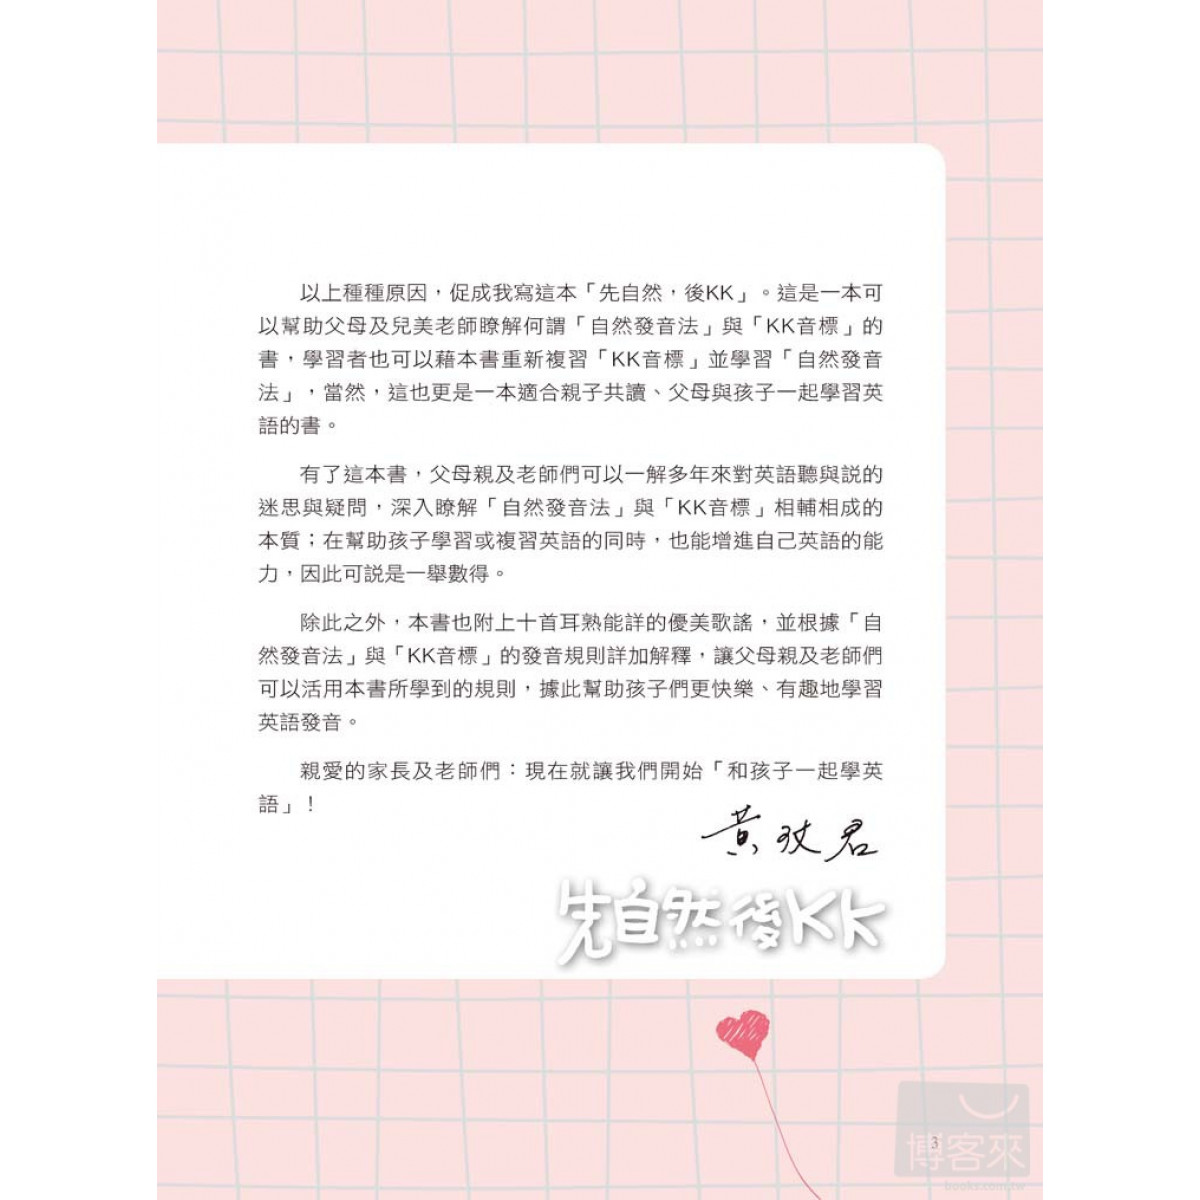 以上種種原因，促成我寫這本「先自然，後KK」。這是一本可
以幫助父母及兒美老師瞭解何謂「自然發音法」與「KK音標」的
書，學習者也可以藉本書重新複習「KK音標」並學習「自然發音
法」，當然，這也更是一本適合親子共讀、父母與孩子一起學習英
語的書。
有了這本書，父母親及老師們可以一解多年來對英語聽與説的
迷思與疑問，深入瞭解「自然發音法」與「KK音標」相輔相成的
本質；在幫助孩子學習或複習英語的同時，也能增進自己英語的能
力，因此可説是一舉數得。
除此之外，本書也附上十首耳熟能詳的優美歌謠，並根據「自
然發音法」與「KK音標」的發音規則詳加解釋，讓父母親及老師們
可以活用本書所學到的規則，據此幫助孩子們更快樂、有趣地學習
英語發音。
親愛的家長及老師們：現在就讓我們開始「和孩子一起學英
語」！
黃玟君
先自然後KK
3
博客來
books.com.tw